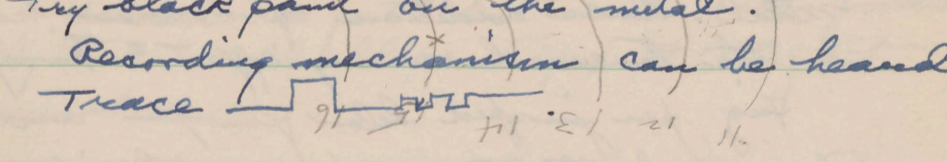 Try black paint on the metal.
Recording mechanism can be heard
Trace
16 15 14 13 12 11